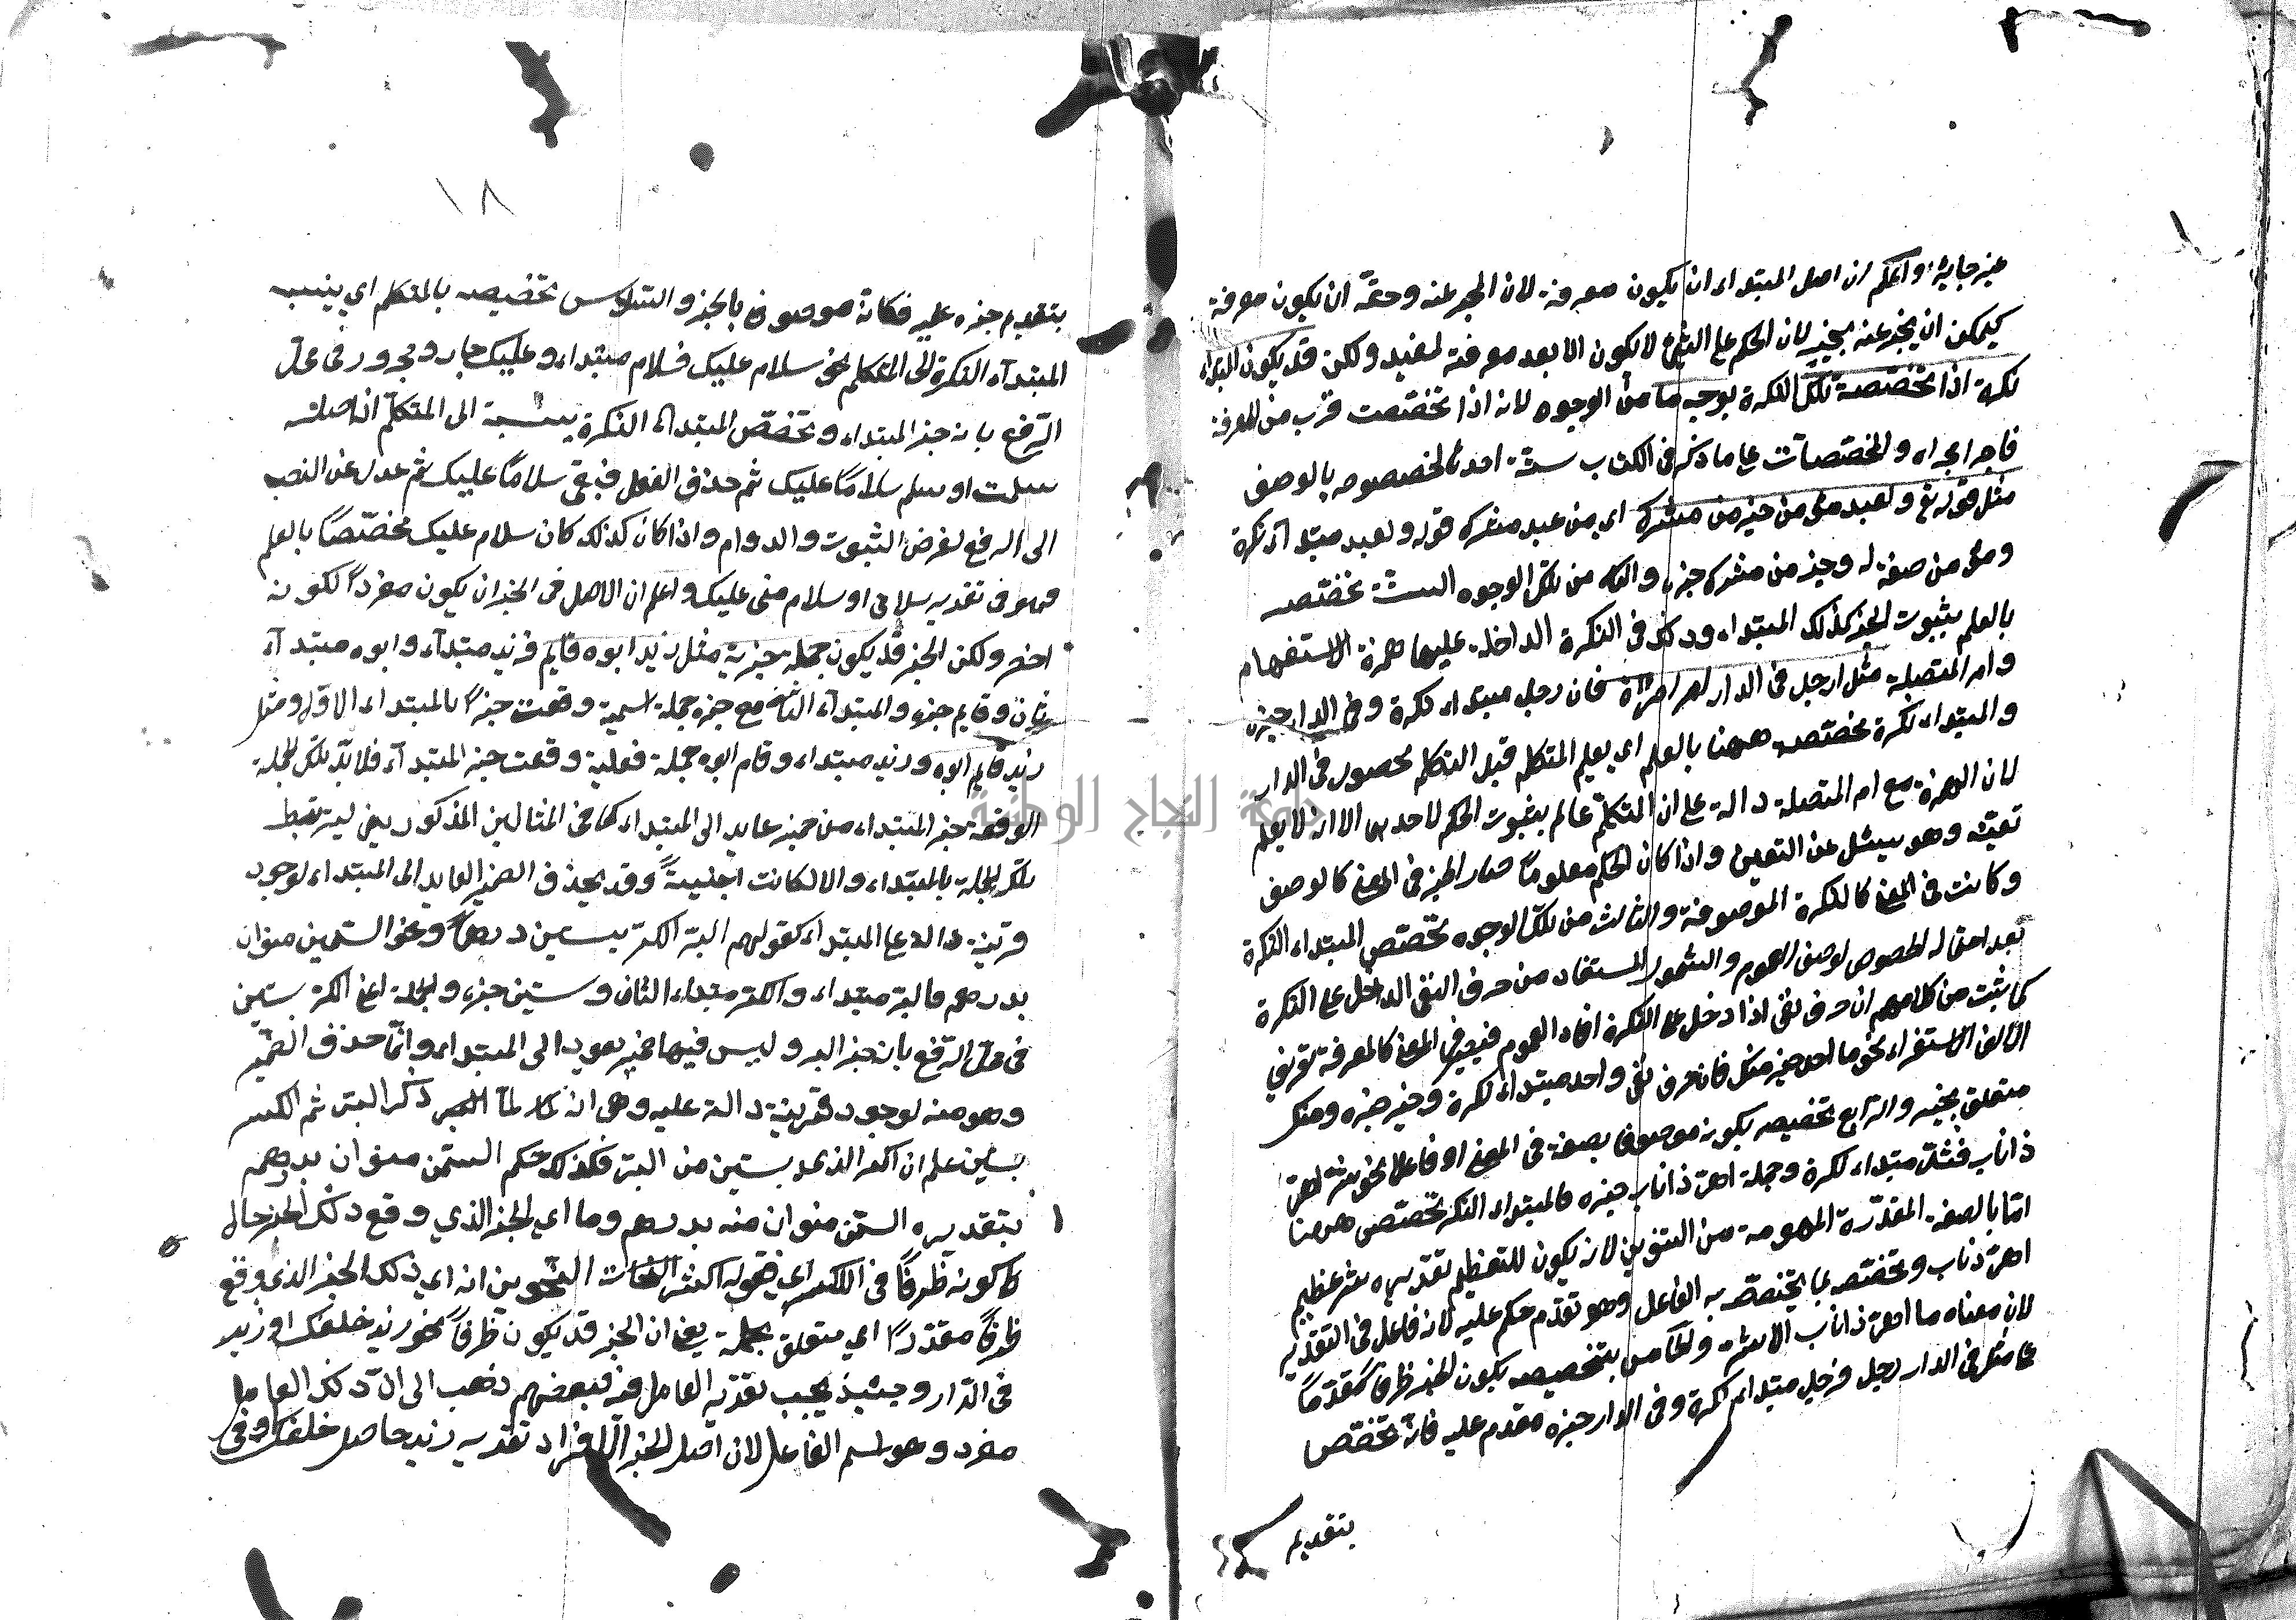 غير جايز واعلم ان اصل المبتداء ان يكون معرفة لان المخبر عنه وحقه ان يكون معرفة
ليمكن ان يخبر عنه بخبر لان الحكم على الشئ لا يكون الا بعد معرفته لمفيد ولكن قد يكون المبتداء
نكرة اذا تخصصة تلك النكرة بوجه ما من الوجوه لانه اذا تخصصت قرب من المعرفة
فاجرا مجراه والمخصصات على ما ذكر في الكتاب ستة احدها المخصوص بالوصف
مثل قوله تع ولعبد مؤمن خير من مشرك اي من عبد مشرك قوله ولعبد مبتداء نكرة
ومؤمن صفة له وخير من مشرك خبره والثانى من تلك الوجوه الستة تخصص
بالعلم بثبوت الخبر كذلك المبتداء وذلك في النكرة الداخلة عليها همزة الاستفهام
وام المتصلة مثل ارجل في الدار ام امراة فان رجل مبتداء نكرة وفي الدار خبره
والمبتداء نكرة مخصص ههنا بالعلم اي يعلم المتكلم قبل التكلم بحصول في الدار
لان الهمزة مع ام المتصلة دالة على ان المتكلم عالم بثبوت الحكم لاحدهما الا انه لا يعلم
تعينه وهو سيئل عن التعين واذا كان الحكم معلوماً صار الخبر في المعنى كالوصف
وكانت في المعنى كالنكرة الموصوفة والثالث من تلك الوجوه تخصص المبتداء النكرة
بعد احتماله الخصوص لوصف العموم والشمول المستفاد من حرف النفى الداخل على النكرة
كما ثبت من كلامهم ان حرف نفى اذا دخل على النكرة افاد العموم فيصير في المعنى كالمعرفة تعريف
الالف الاستغراء نحو ما احد خير منك فان حرف نفى واحد مبتداء نكرة وخير خبره ومنك
متعلق بخير والرابع تخصيصه بكونه موصوفا بصفة في المعنى او فاعلا نحو شر اهر
ذا ناب فشر مبتداء نكرة وجملة اهر ذا ناب خبره فالمبتداء النكرة تخصص ههنا
امّا بالصفة المقدّرة المفهومة من التنوين لانه يكون للتعظيم تقديره شر عظيم
اهر ذناب وتخصصه بما يتخصص به الفاعل وهو تقدم حكم عليه لانه فاعل في التقدير
لان معناه ما اهر ذا ناب الا شر والخامس بتخصيصه بكون الخبر ظرفا مقدماً
على مثل في الدار رجل فرجل مبتداء نكرة وفي الدار خبره مقدم عليه فانه تخصص
بتقديم
١٨
بتقديم خبره عليه فكانه موصوف بالخبر والسادس تخصيصه بالمتكلم اي ينسب
المبتداء النكرة الى المتكلم نحو سلام عليك فسلام مبتداء وعليك جار ومجرور في محلّ
الرفع بانه خبر المبتداء وتخصص المبتداء النكرة بنسبة الى المتكلم اذ اصله
سلمت او سلم سلاماً عليك ثم حذف الفعل فبقي سلاماً عليك ثم عدل عن النصب
الى الرفع لغرض الثبوت والدوام واذا كان كذلك كان سلام عليك مخصّصاً بالعلم
فهو في تقدير سلامى او سلام منى عليك واعلم ان الاصل في الخبر ان يكون مفرداً لكونه
اخصر ولكن الخبر قد يكون جملة خبرية مثل زيد ابوه قايم فزيد مبتداء وابوه مبتداء
ثان وقايم خبره والمبتداء الثانى مع خبره جملة اسمية وقعت خبراً بالمبتداء الاول ومثل
زيد قايم ابوه وزيد مبتداء وقام ابوه جملة فعلية وقعت خبر المبتداء فلا بد تلك الجملة
الوقعة خبر المبتداء من ضمير عايد الى المبتداء كما في المثالين المذكورين ليرتبط
تلك الجملة بالمبتداء والا لكانت اجنبيةً وقد يحذف الضمير العايد الى المبتداء لوجود
قرينة دالة على المبتداء كقولهم البر الكر بستين درهماً ونحو السمن منوان
بدرهم فالبر مبتداء والكر مبتداء الثان وستين خبره والجملة اعنى الكر ستين
في محل الرفع بانه خبر البر وليس فيها ضمير يعود الى المبتداء وانّما حذف الضمير
وهو منه لوجود قرينة دالة عليه وهي انه لما ذكر البر ثم الكر
بستين علم ان الكر الذى بستين من البر فكذلك حكم السمن منوان بدرهم
بتقديره السمن منوان منه بدرهم وما اي الخبر الذي وقع ذلك الخبر حال
كونه ظرفاً اي فقوله اكثر النحات النحوين انه اي ذلك الخبر الذي وقع
ظرفاً مقدّراً اي متعلق بجملة يعنى ان الخبر قد يكون ظرفاً نحو زيد خلفك او زيد
في الدّار وحينئذ يجب تقدير العامل فيه فبعضهم ذهب الى انّ ذلك العامل
مفرد وهو اسم الفاعل لان اصل الخبر الافراد تقديره زيد حاصل خلفك وفي
جامعة النجاح الوطنية